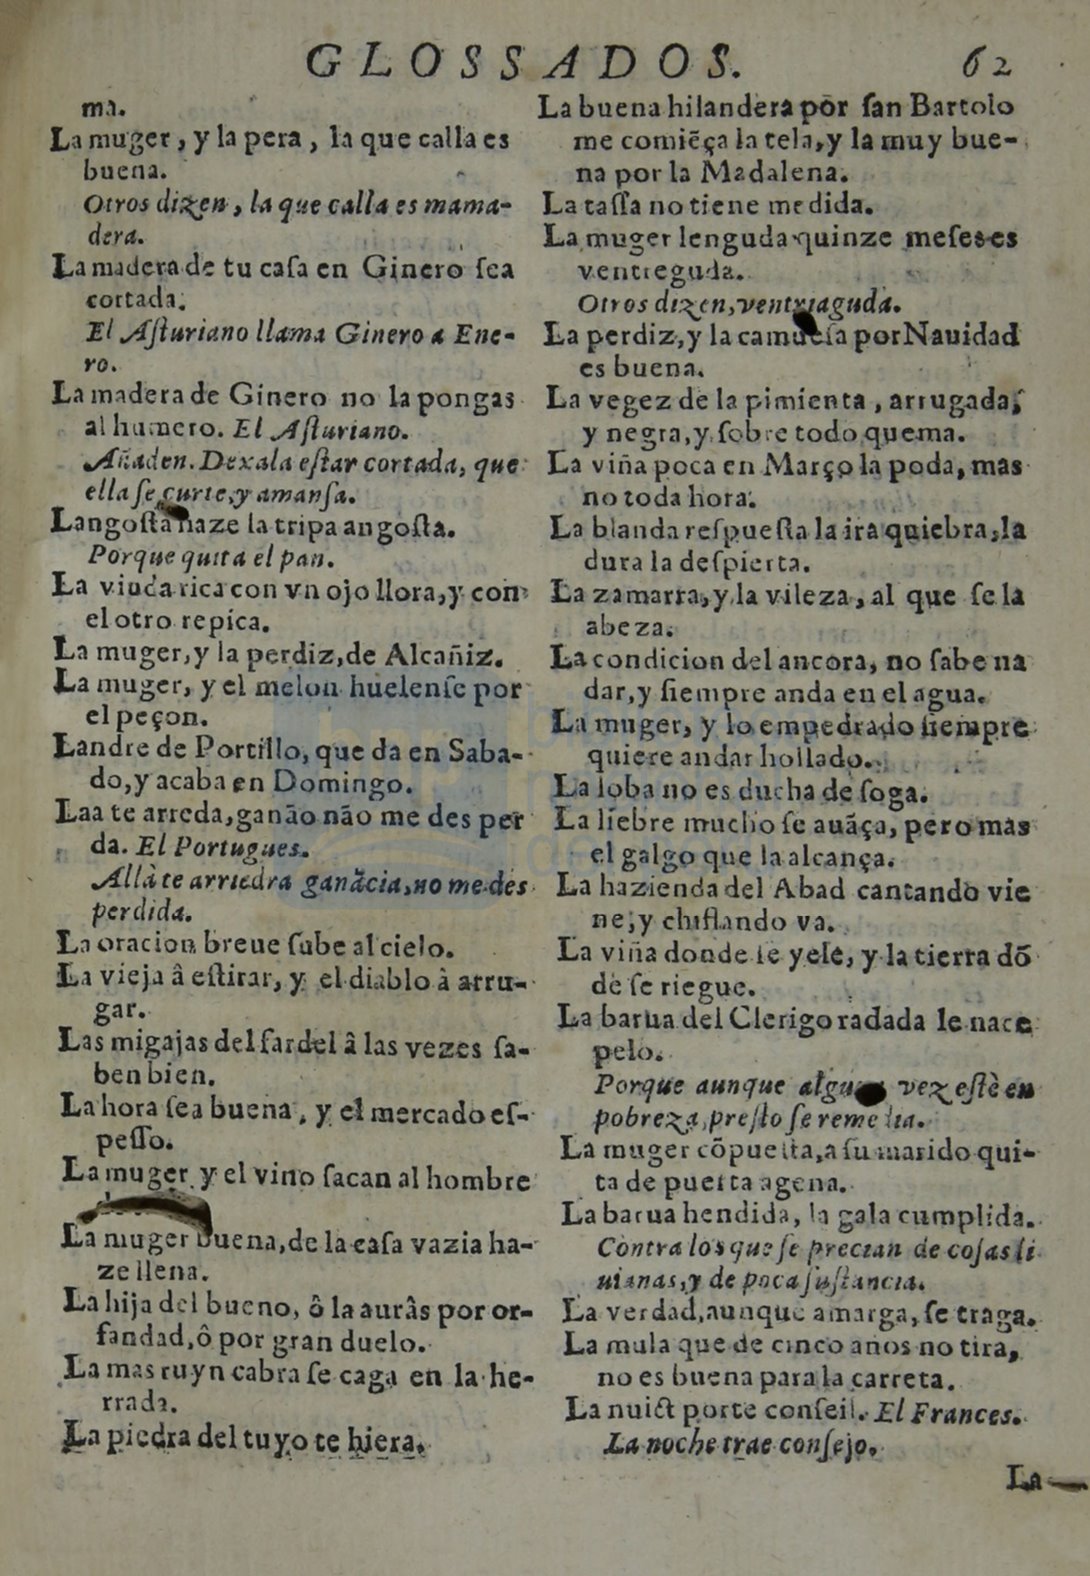 GLOSSADOS. 62
ma.
La muger, y la pera, la que calla es
buena.
Otros dizen, la que calla es mama-
dera.
La madera de tu casa en Ginero sea
cortada.
El Asturiano llama Ginero a Ene-
ro.
La madera de Ginero no la pongas
al humero. El Asturiano.
Añaden. Dexala estar cortada, que
ella se curte, y amansa.
Langosta haze la tripa angosta.
Porque quita el pan.
La viuda rica con vn ojo llora, y con
el otro repica.
La muger, y la perdiz, de Alcañiz.
La muger, y el melon huelense por
el peçon.
Landre de Portillo, que da en Saba-
do, y acaba en Domingo.
Laa te arreda, ganão não me des per
da. El Portugues.
Allà te arriedra ganãcia, no me des
perdida.
La oracion breue sube al cielo.
La vieja â estirar, y el diablo à arru-
gar.
Las migajas del fardel â las vezes sa-
ben bien.
La hora sea buena, y el mercado es-
pesso.
La muger y el vino sacan al hombre
La muger buena, de la casa vazia ha-
ze llena.
La hija del bueno, ô la aurâs por or-
fandad, ô por gran duelo.
La mas ruyn cabra se caga en la he-
rrada.
La piedra del tuyo te hiera.
La buena hilandera por san Bartolo
me comiẽça la tela, y la muy bue-
na por la Madalena.
La tassa no tiene medida.
La muger lenguda quinze meses es
ventreguda.
Otros dizen, ventriaguda.
La perdiz, y la camuesa por Nauidad
es buena.
La vegez de la pimienta, arrugada,
y negra, y sobre todo quema.
La viña poca en Março la poda, mas
no toda hora.
La blanda respuesta la ira quiebra, la
dura la despierta.
La zamarra, y la vileza, al que se la
abeza.
La condicion del ancora, no sabe na
dar, y siempre anda en el agua.
La muger, y lo empedrado siempre
quiere andar hollado.
La loba no es ducha de soga.
La liebre mucho se auãça, pero mas
el galgo que la alcança.
La hazienda del Abad cantando vie
ne, y chiflando va.
La viña donde se yele, y la tierra dõ
de se riegue.
La barua del Clerigo radada le nace
pelo.
Porque aunque alguna vez estè en
pobreza, presto se remedia.
La muger cõpuesta, a su marido qui-
ta de puerta agena.
La barua hendida, la gala cumplida.
Contra los que se precian de cosas li
uianas, y de poca sustancia.
La verdad, aunque amarga, se traga.
La mula que de cinco años no tira,
no es buena para la carreta.
La nuict porte conseil. El Frances.
La noche trae consejo.
La